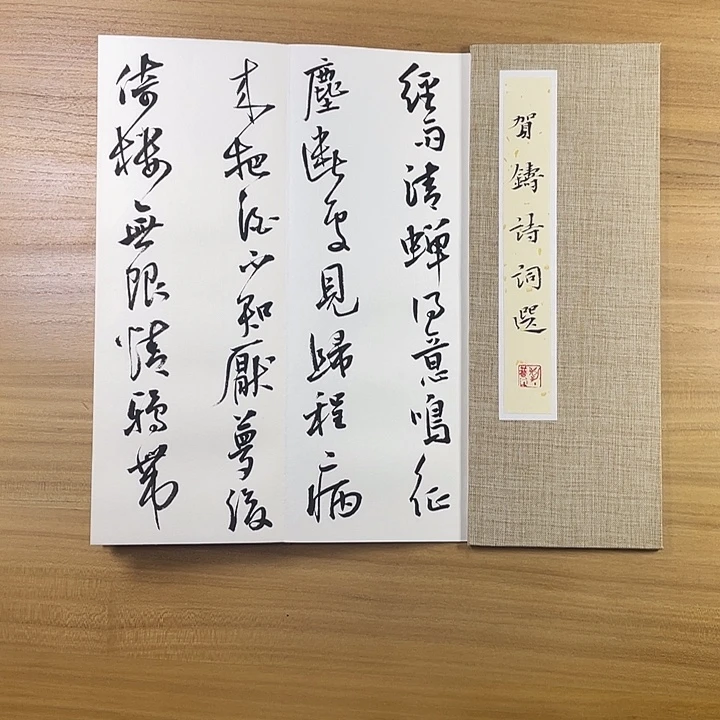 賀鑄詩詞選
經雨清蝉得意鳴征
塵斷處見歸程病
来把酒不知厭夢後
倚樓無限情鴉帶